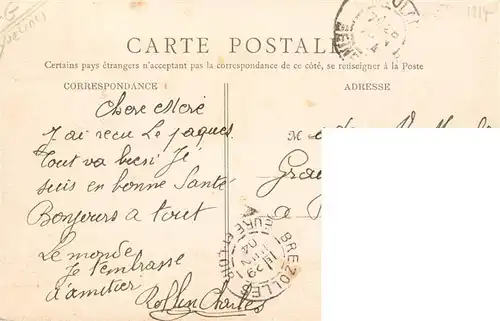 1914
CARTE POSTALE
Certains pays étrangers n'acceptant pas la correspondance de ce côté, se renseigner à la Poste
CORRESPONDANCE
Chere Mère
J ai recu Le paques
Tout va bien Je
suis en bonne Santé
Bonjours a tout
Le monde
Je t'embrasse
d'amitier
Rollin Charles
ADRESSE
M
a
BREZOLLES
EURE ET LOIR